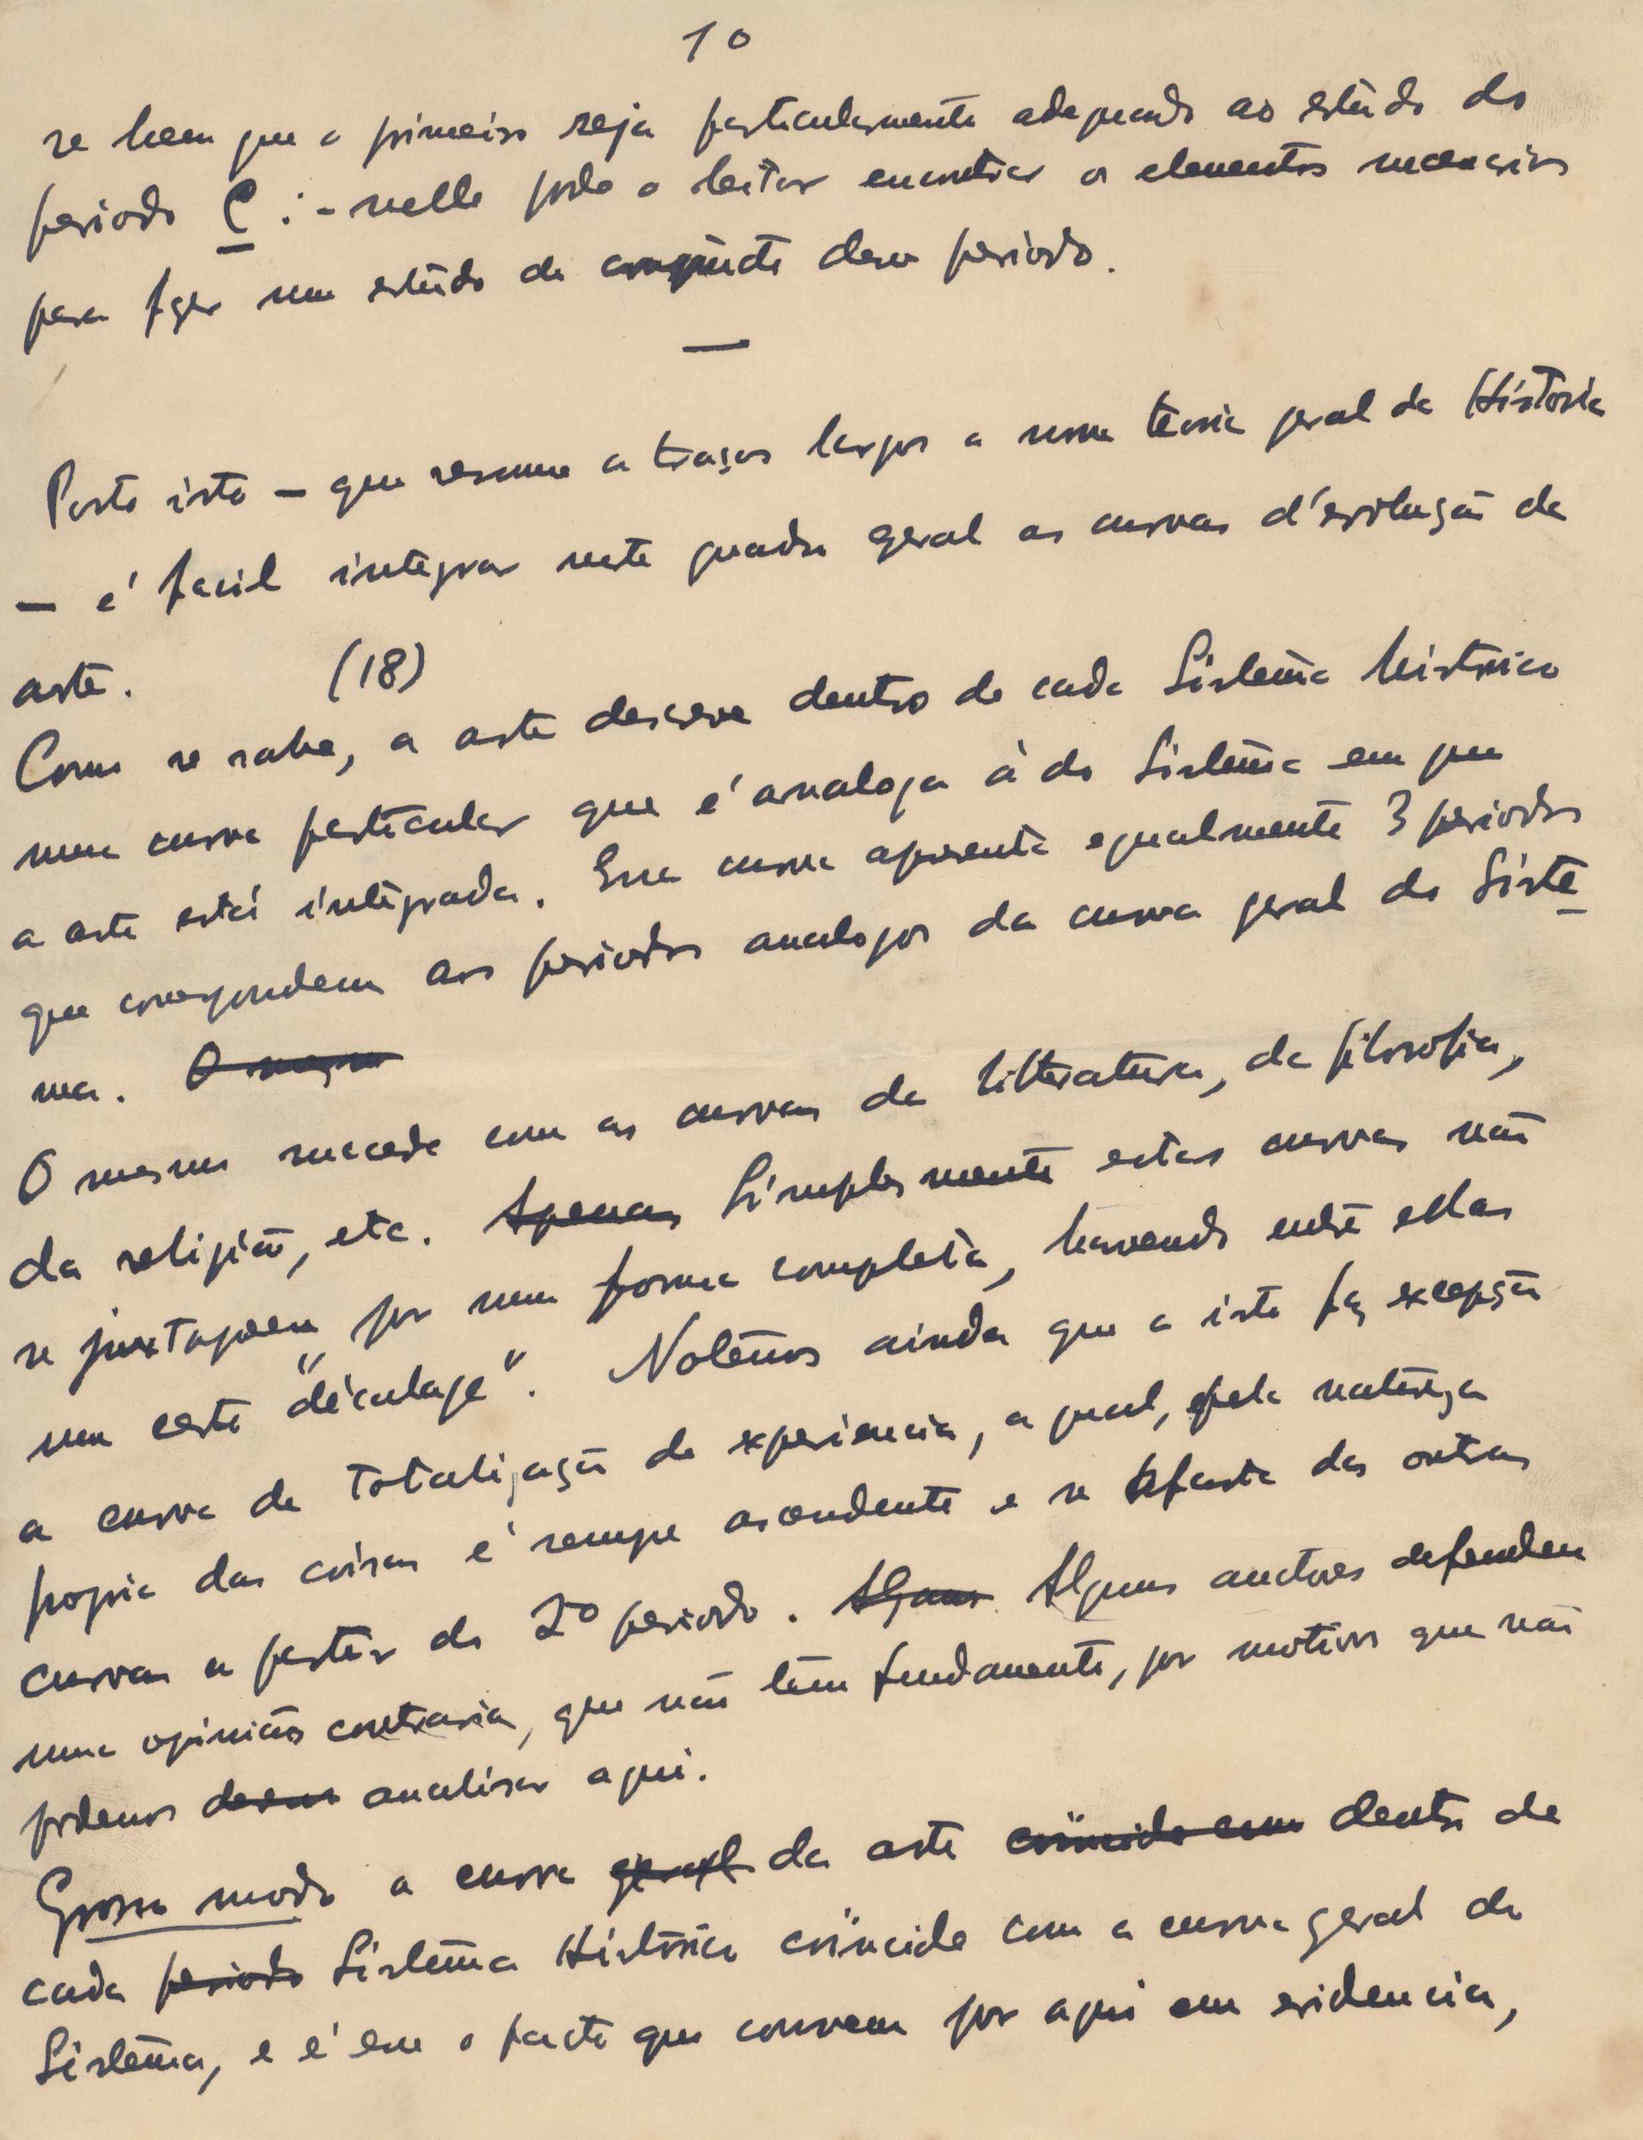 10
se bem que o primeiro seja particularmente adequado ao estudo do
periodo C : - nelle pode o leitor encontrar os elementos necessarios
para fazer um estudo de conjuncto desse periodo.
—
Posto isto — que resume a traços largos a nova teoria geral da Historia
— é facil integrar neste quadro geral as curvas d'evolução da
arte. (18)
Como se sabe, a arte descreve dentro de cada Sistema historico
uma curva particular que é analoga à do Sistema em que
a arte está integrada. Essa curva apresenta egualmente 3 periodos
que correspondem aos periodos analogos da curva geral do Siste
ma. O mesmo
O mesmo succede com as curvas da litteratura, da filosofia,
da religião, etc. Apenas Simplesmente estas curvas não
se juxtapoem por uma forma completa, havendo entre ellas
um certo "décalage". Notemos ainda que a isto faz excepção
a curva da totalização da experiencia, a qual, pela natureza
propria das coisas é sempre ascendente e se afasta das outras
curvas a partir do 2º periodo. Alguns Alguns auctores defendem
uma opinião contraria, que não tem fundamento, por motivos que não
podemos analisar aqui.
Grosso modo a curva geral da arte coïncide com dentro de
cada periodo Sistema Histórico coïncide com a curva geral do
Sistema, e é esse o facto que convem pôr aqui em evidencia,